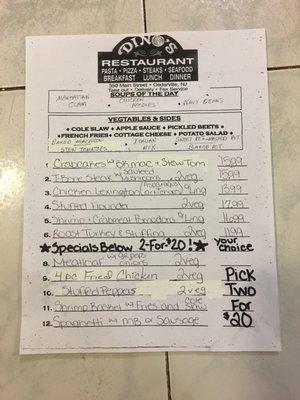 DINO'S
RESTAURANT
PASTA • PIZZA • STEAKS • SEAFOOD
BREAKFAST LUNCH DINNER
Take out • Delivery • Fax Service
SOUPS OF THE DAY
MANHATTAN CLAM
CHICKEN NOODLES
NAVY BEANS
VEGTABLES & SIDES
• COLE SLAW • APPLE SAUCE • PICKLED BEETS •
• FRENCH FRIES • COTTAGE CHEESE • POTATO SALAD •
BAKED MACARONI
STEW TOMATOES
ITALIAN
BAKED POT
1. Crabcakes w/ Bk mac + Stew Tom 1599
2. T-Bone Steak w/ Sauteed Mushrooms 2 veg 1599
3. Chicken Lexington (Asparagus) w/ Ling 1399
4. Stuffed Flounder 2 veg 1799
5. Shrimp + Crabmeat Pomodoro w/ Ling 1699
6. Roast Turkey & Stuffing 2 veg 1199
★ Specials Below 2-For $20! ★ your choice
8. Meatloaf w/ gr peps onions 2 veg
9. 4 pc Fried Chicken 2 veg
10. Stuffed Peppers 2 veg
11. Shrimp Basket w/ Fries and Cole Slaw
12. Spaghetti w/ MB or Sausage
PICK
TWO
FOR
$20